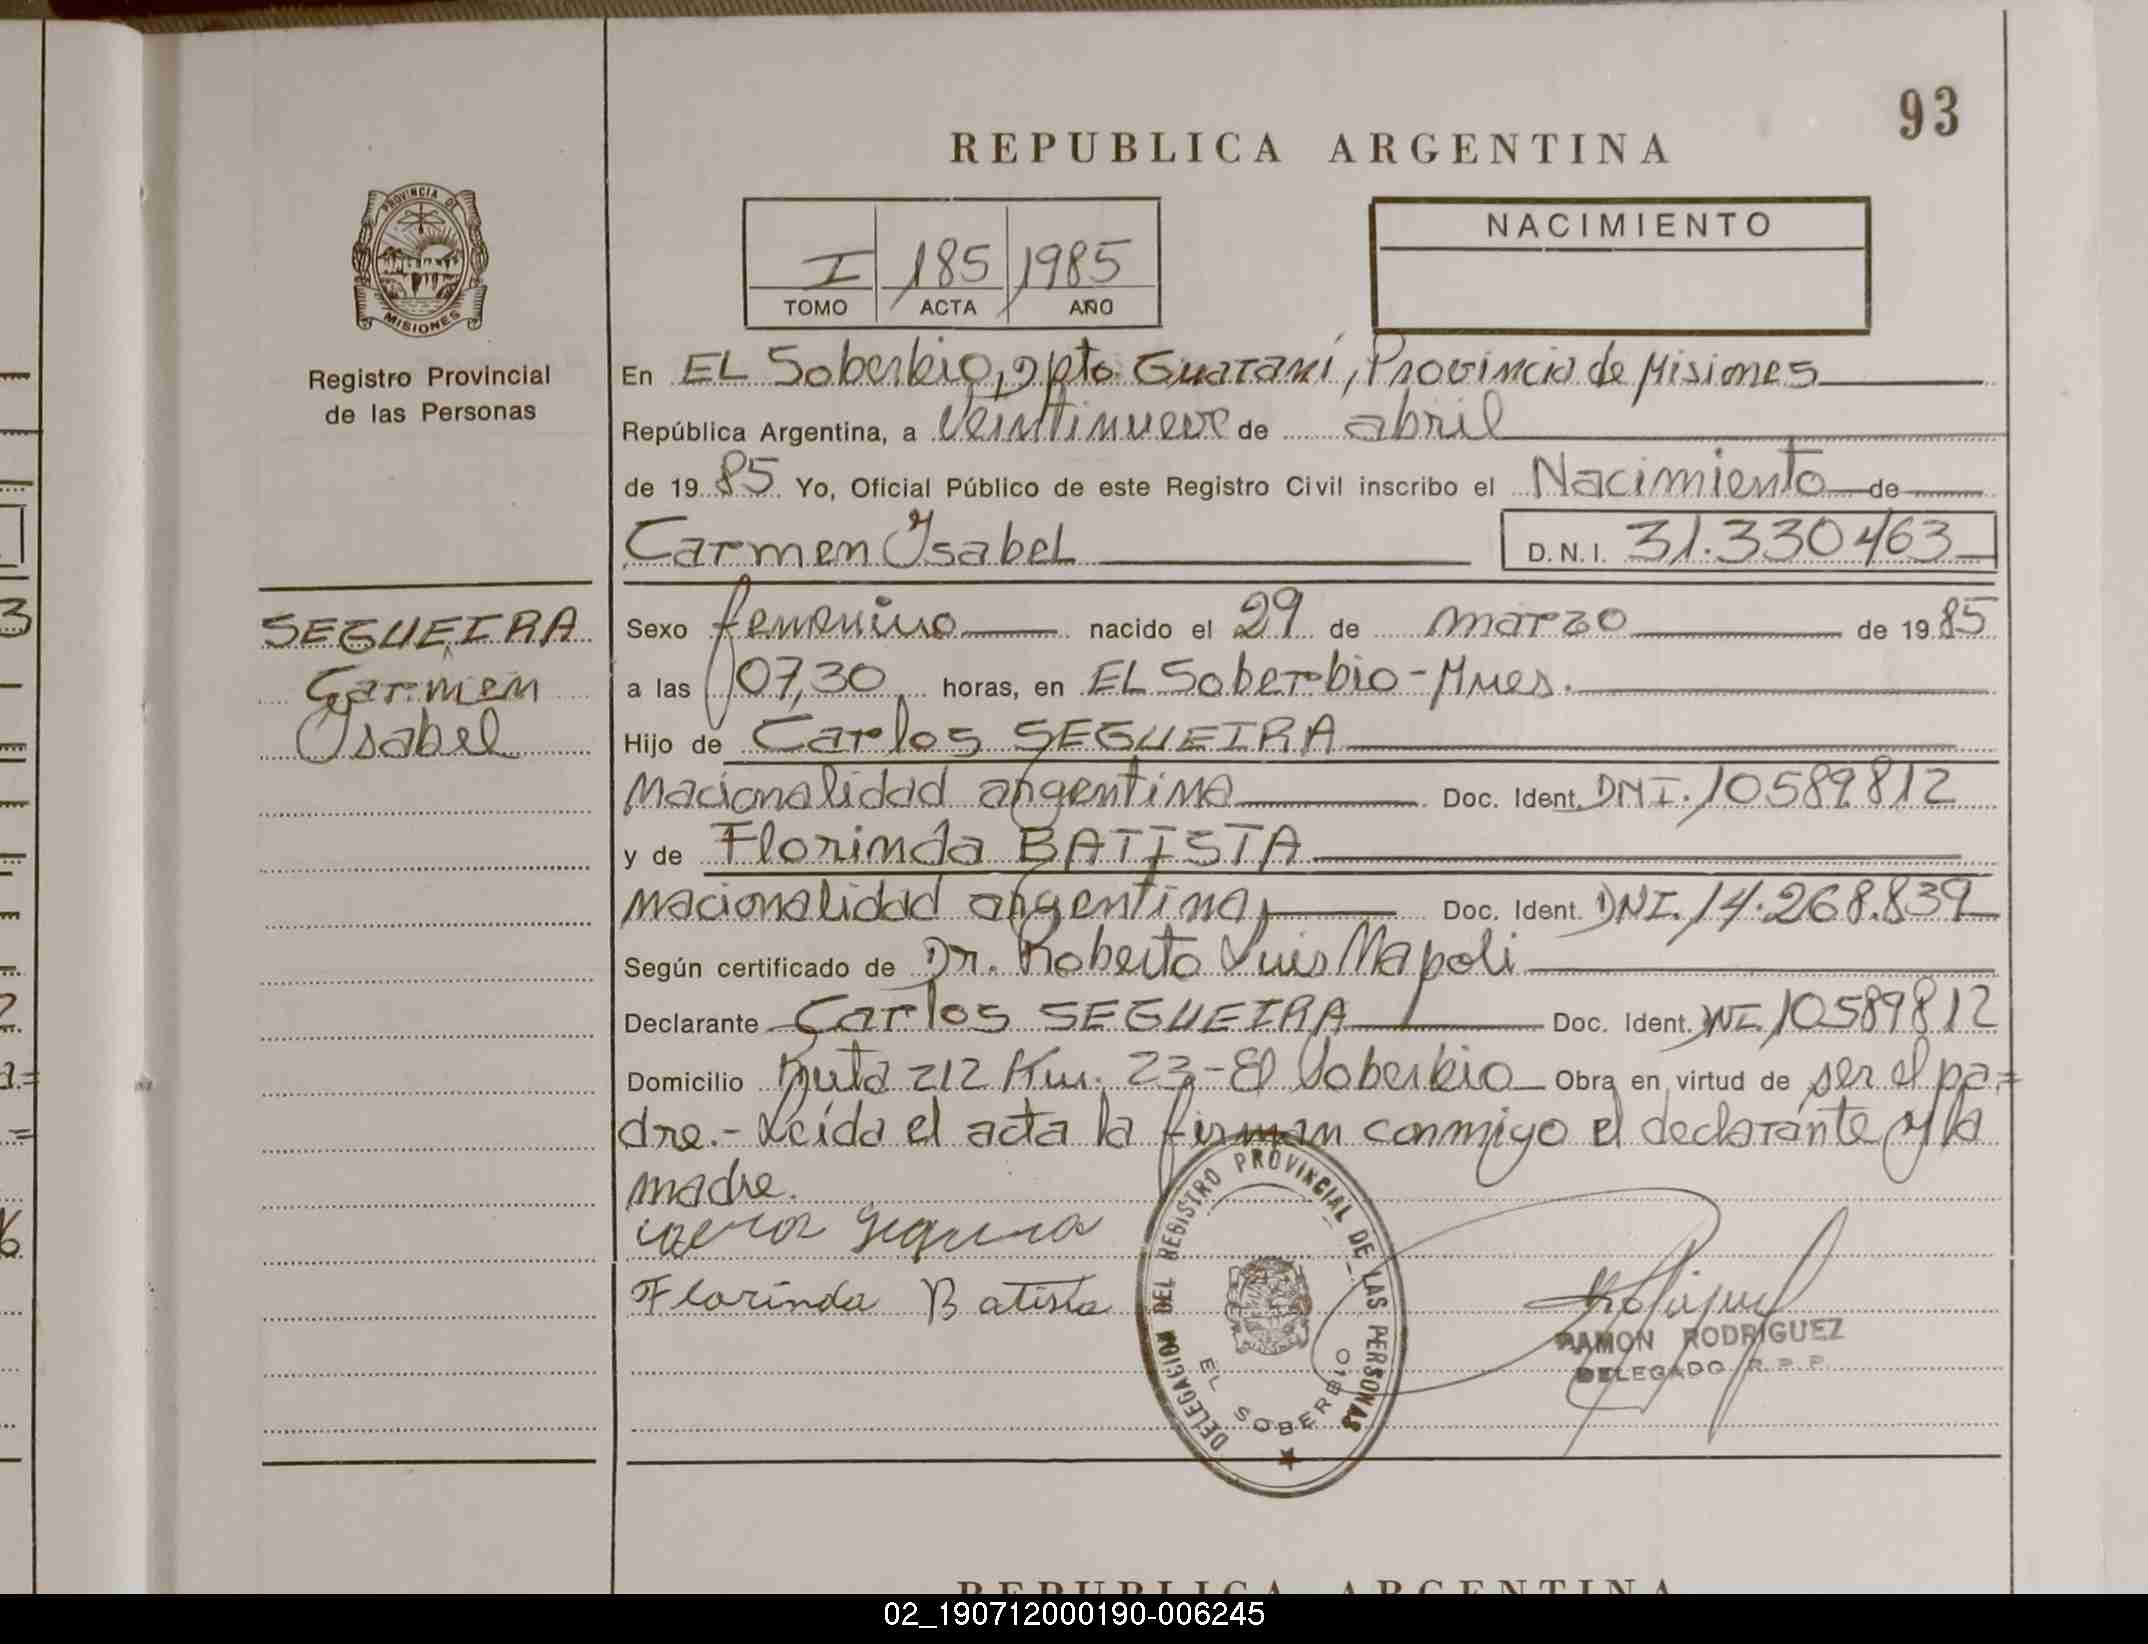 93
REPUBLICA ARGENTINA
PROVINCIA DE
MISIONES
Registro Provincial
de las Personas
I 185 1985
TOMO ACTA AÑO
NACIMIENTO
En EL Soberbio, Dpto. Guaraní, Provincia de Misiones
República Argentina, a veintinueve de abril
de 1985 Yo, Oficial Público de este Registro Civil inscribo el Nacimiento de
Carmen Ysabel D.N.I. 31.330463
SEGUEIRA
Carmen
Ysabel
Sexo femenino nacido el 29 de marzo de 1985
a las 07,30 horas, en EL Soberbio-Mnes.
Hijo de Carlos SEGUEIRA
nacionalidad argentina Doc. Ident. DNI. 10589812
y de Florinda BATISTA
nacionalidad argentina, Doc. Ident. DNI. 14.268.839
Según certificado de Dr. Roberto Luis Napoli
Declarante Carlos SEGUEIRA Doc. Ident. DNI. 10589812
Domicilio Ruta 212 Km. 23-El Soberbio Obra en virtud de ser el pa=
dre.- Leída el acta la firman conmigo el declarante y la
madre.
Florinda Batista
DELEGACION DEL REGISTRO PROVINCIAL DE LAS PERSONAS
EL SOBERBIO
RAMON RODRIGUEZ
DELEGADO R.P.P.
REPUBLICA ARGENTINA
02_190712000190-006245